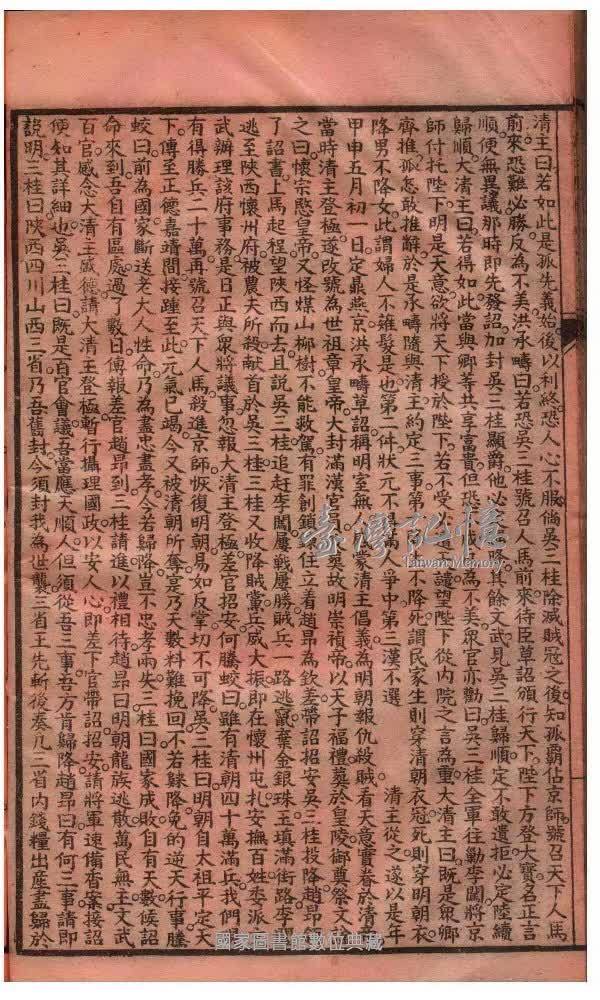 清主曰若如此是孤先義始後以利終恐人心不服倘吳三桂除滅賊冦之後知孤霸佔京師號召天下人馬
前來恐難必勝反為不美洪承疇曰若恐吳三桂號召人馬前來待臣草詔頒行天下陛下方登大寶名正言
順便無異議那時即先發詔加封吳三桂顯爵他必降其餘文武見吳三桂歸順定不敢遣拒必定陸續
歸順大清主曰若得如此當與卿等共享富貴但恐為不美衆官亦勸曰吳三桂全軍往勦李闖將京
師付托陛下明是天意欲將天下授於陛下若不受必請望陛下從內院之言為重大清主曰既是衆卿
齊推孤怎敢推辭於是承疇隨與清主約定三事第不降死謂民家生則穿清朝衣冠死則穿明朝衣
降男不降女此謂婦人不薙髮是也第二件狀元不滿人爭中第三漢不選 清主從之遂以是年
甲申五月初一日定鼎燕京洪承疇草詔稱明室無蒙清主倡義為明朝報仇殺賊看天意寶眷於清
當時清主登極遂改號為世祖章皇帝大封滿漢官員故明崇禎帝以天子福禮葬於皇陵御尊祭文
之曰懷宗愍皇帝又怪煤山柳樹不能救駕有罪創鎖住立着趙昂為欽差帶詔招安吳三桂投降趙昂
了詔書上馬起程望陝西而去且說吳三桂追赶李闖屢戰屢勝賊兵一路逃竄棄金銀珠玉填滿街路李
逃至陝西懷州府被農夫所殺献首於吳三桂三桂又收降賊黨兵威大振即在懷州屯扎安撫百姓委派
武辦理該府事務是日正與衆將議事忽報大清主登極差官招安何騰蛟曰雖有清朝四十萬滿兵我們
有得勝兵二十萬再號召天下人馬殺進京師恢復明朝易如反掌切不可降吳三桂曰明朝自太祖平定天
下傳至正德嘉靖間接踵至此元氣已竭今又被清朝所奪寔乃天數料難挽回不若歸降免的逆天行事騰
蛟曰前為國家斷送老大人性命乃為盡忠盡孝今若歸降豈不忠孝兩失三桂曰國家成敗自有天數候詔
命來到吾自有區處過了數日傳報差官趙昂到三桂請進以禮相待趙昂曰明朝龍族逃散萬民無主文武
百官感念大清主威德請大清主登極暫行攝理國政以安人心即差下官帶詔招安請將軍速備香案接詔
便知其詳細也吳三桂曰既是百官會議吾當應天順人但須從吾三事吾方肯歸降趙昂曰有何三事請即
說明三桂曰陝西四川山西三省乃吾舊封今須封我為世襲三省王先斬後奏凡三省內錢糧出產盡歸於
臺灣記憶
Taiwan Memory
國家圖書館數位典藏